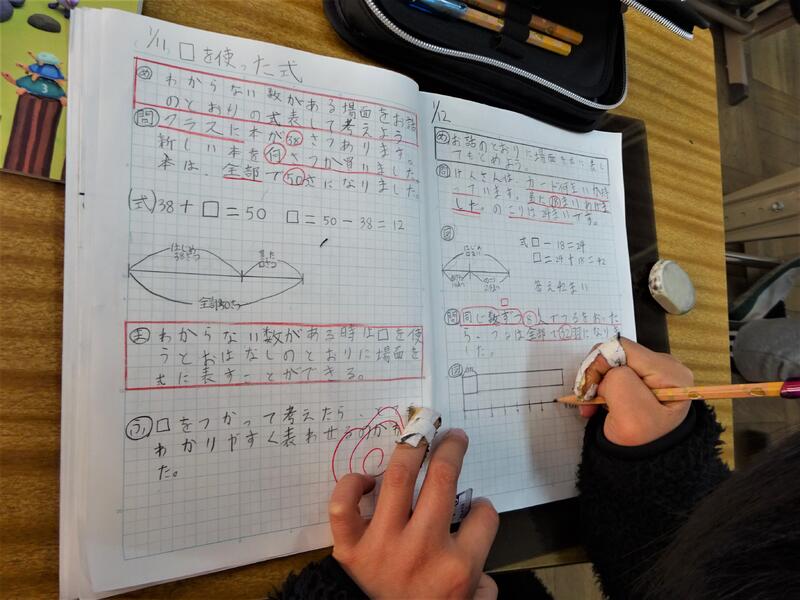 1/11 □を使った式
め わからない数がある場面をお話
のとおりの式表して考えよう
問 クラスに本が38さつあります。
新しい本を何さつか買いました。
本は、全部で50さつになりました。
(式) 38+□=50 □=50-38=12
はじめ
38さつ
買った
□さつ
全部50さつ
ま わからない数がある時は□を使
うとおはなしのとおりに場面を
式に表すことができる。
ふ □をつかって考えたら、
わかりやすく表わせるのがわ
た。
1/12
め お話のとおりに場面を式に表し
てもとめよう。
図
はじめ
□まい
式 □-18=24
□=24+18=42
答え 42まい
問 同じ数ずつ8人でつるをおった
ら、つるは全部で32羽になりま
した。
図